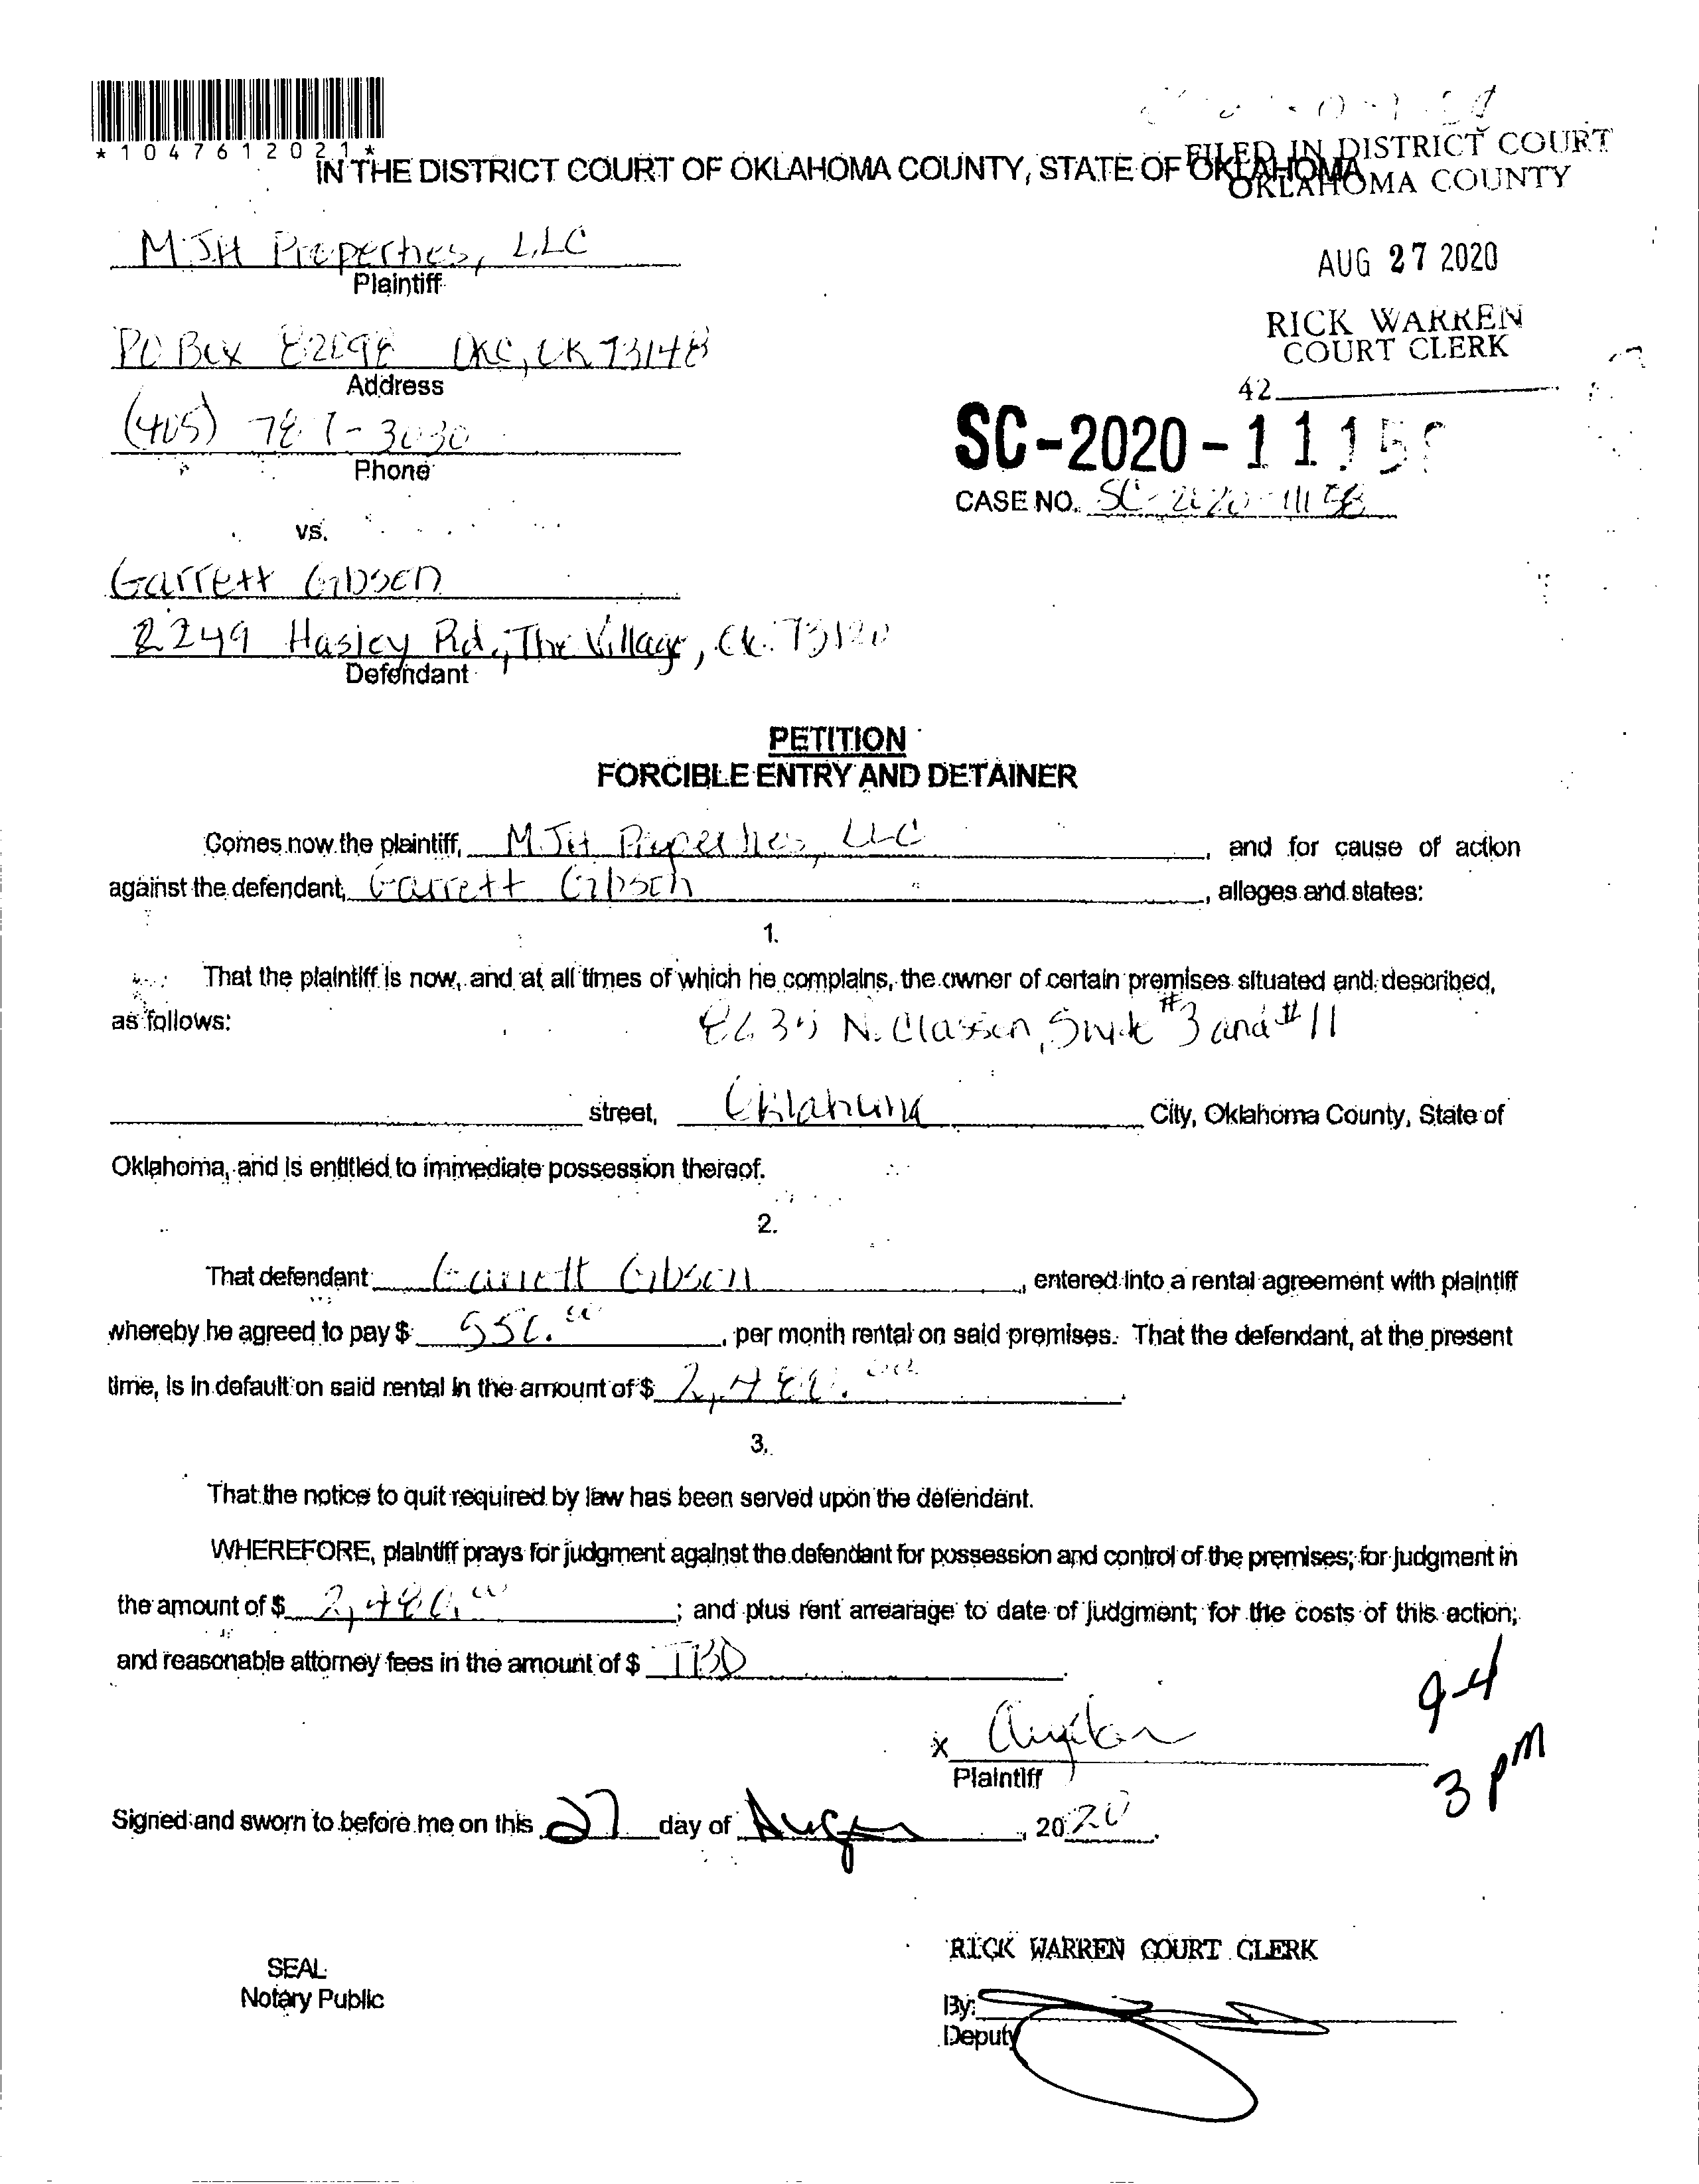 *1047612021*
IN THE DISTRICT COURT OF OKLAHOMA COUNTY, STATE OF OKLAHOMA
FILED IN DISTRICT COURT
OKLAHOMA COUNTY
MJH Properties, LLC
Plaintiff
AUG 27 2020
RICK WARREN
COURT CLERK
42
PO Box 82098 OKC, OK 73148
Address
(405) 787-3030
Phone
SC-2020-1115
CASE NO. SC-2020-11158
vs.
Garrett Gibson
2249 Hasley Rd., The Village, Ok. 73120
Defendant
PETITION
FORCIBLE ENTRY AND DETAINER
Comes now the plaintiff, MJH Properties, LLC, and for cause of action
against the defendant, Garrett Gibson, alleges and states:
1.
That the plaintiff is now, and at all times of which he complains, the owner of certain premises situated and described,
as follows:
N. Classen, Suite #3 and #11
street, Oklahoma City, Oklahoma County, State of
Oklahoma, and is entitled to immediate possession thereof.
2.
That defendant Garrett Gibson, entered into a rental agreement with plaintiff
whereby he agreed to pay $ 550.00, per month rental on said premises. That the defendant, at the present
time, is in default on said rental in the amount of $ 2,480.00.
3.
That the notice to quit required by law has been served upon the defendant.
WHEREFORE, plaintiff prays for judgment against the defendant for possession and control of the premises; for judgment in
the amount of $ 2,480.00; and plus rent arrearage to date of judgment; for the costs of this action;
and reasonable attorney fees in the amount of $ TBD.
9-4
3 pm
x
Plaintiff
Signed and sworn to before me on this 27 day of August, 2020.
RICK WARREN COURT CLERK
SEAL
Notary Public
By:
Deputy